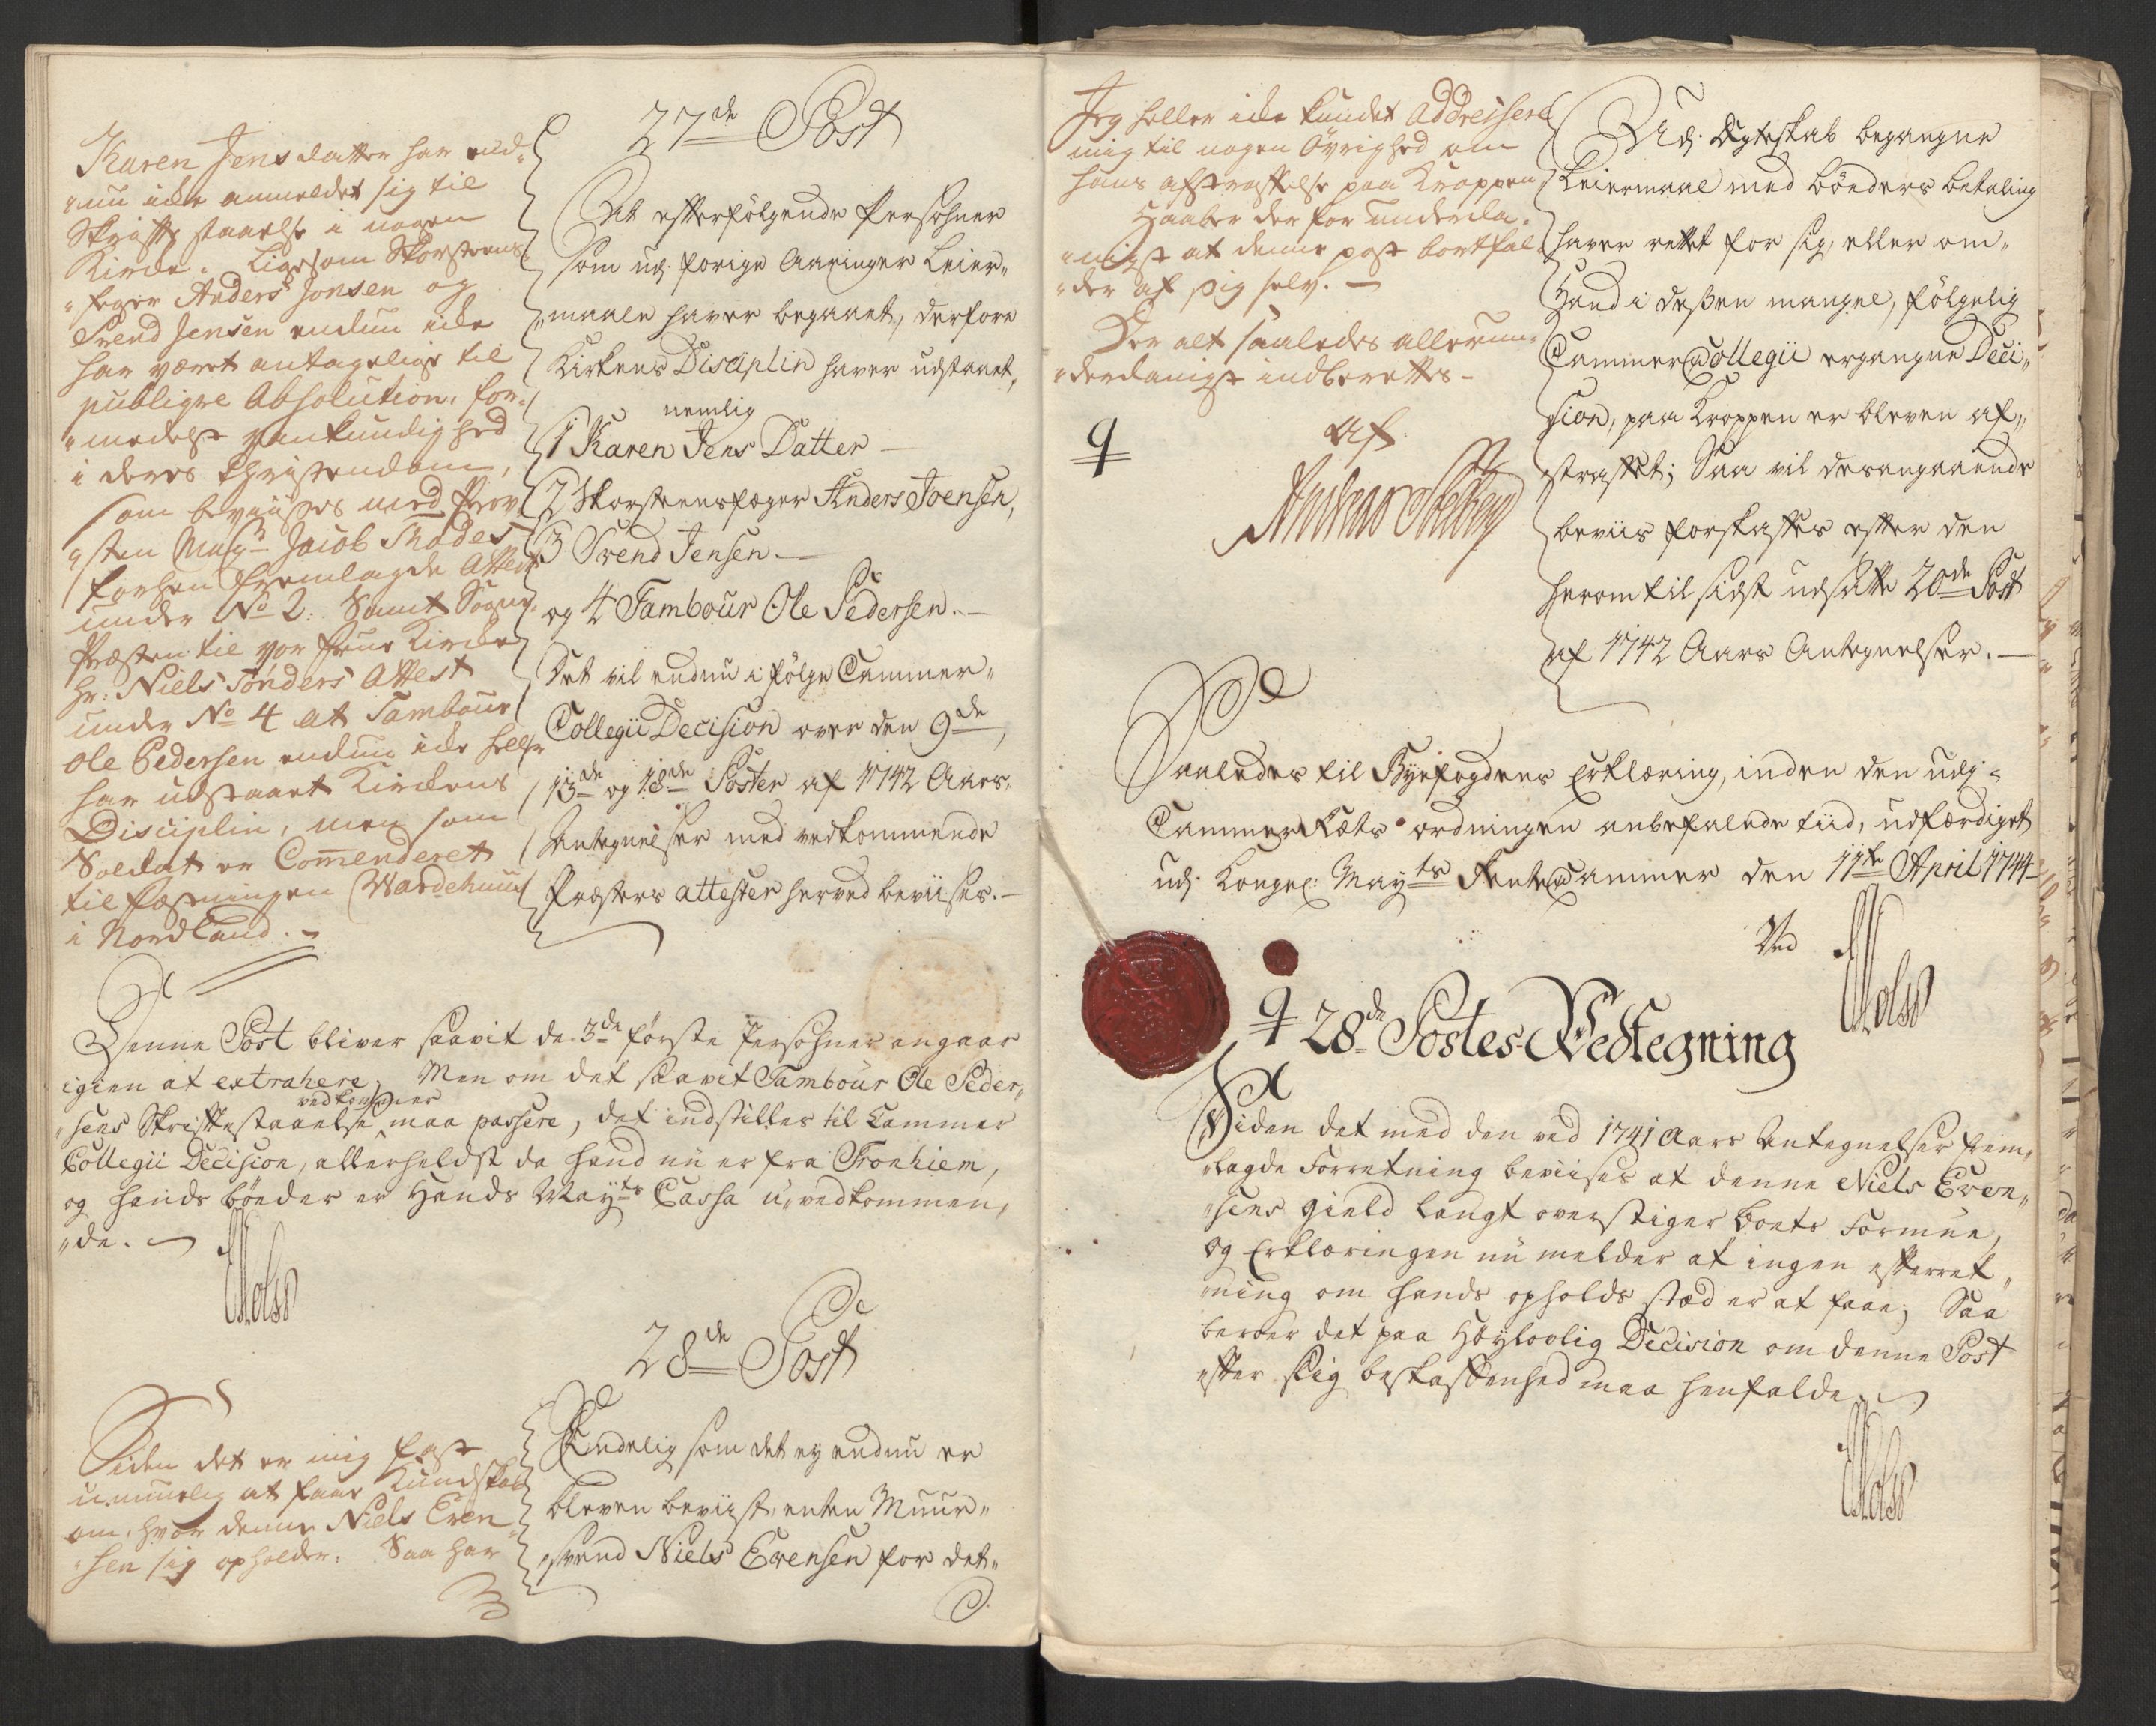 27de Post
Karen Jensdatter har end„
„nu icke anmeldet sig til
Skrifte staaelse i nogen
Kircke. Ligesom Skorsteens„
„feger Anders Jonsen og
Svend Jensen endnu icke
har været antagelige til
publiqve Absolution, for„
„medelst vankundighed
i deres Christendom,
som bevises med Prov„
„sten Magr Jacob Thodes
forhen fremlagde Attest
under No 2. Samt Sogne„
Præsten til vor Frue Kircke
hr: Niels Tønders Attest
under No 4 at Tambour
Ole Pedersen endnu icke heller
har udstaaet Kirckens
Disciplin, men som
Soldat er Commenderet
til Fæstningen Wardehuus
i Nordland.
At efterfölgende Persohner
som udj forige Aaringer Leier„
„maale haver begaaet, derfore
Kirkens Disciplin haver udstaaet,
nemlig
1 Karen Jens Datter
2 Skorsteensfæger Anders Joensen,
3 Svend Jensen.
og 4 Tambour Ole Pedersen.
Det vil endnu i fölge Cammer„
Collegii Decision over den 9de,
13de og 18de Poster af 1742 Aars
Antegnelser med vedkommende
Præsters attester herved beviises.
Denne Post bliver saavit de 3de förste Persohner angaar
igien at extrahere; Men om det saavit Tambour Ole Peder„
„sens Skriftestaaelse vedkommer maa passere, det indstilles til Cammer
Collegii Decision, allerhelst da hand nu er fra Tronhiem,
og hands böeder er Hands Mayts Cassa u„vedkommen„
„de.
28de Post
Siden det er mig fast
u„muelig at faae Kundskab
om, hvor denne Niels Even„
„sen sig opholder: Saa har
Endelig som det ey endnu er
bleven beviist, enten Muur„
„svend Niels Evensen for det„
Jeg heller icke kundet addressere
mig til nogen Övrighed om
hans afstraffelse paa Kroppen
Haaber der for underda„
„nigst at denne post bortfal„
„der af sig selv.
Der alt saaledes allerun„
„derdanigst indberettes
af
Udj Ægteskab begangne
Leiermaal med böeders betaling
haver rettet for sig, eller om
Hand i deßen mangel, fölgelig
Cammer Collegii ergangne Deci„
sion, paa Kroppen er bleven af„
„straffet; Saa vil desangaaende
beviis forskaffes efter den
herom til sidst udsatte 20de Post
af 1742 Aars Antegnelser.
Saaledes til Byefogdens Erklæring, inden den udj
Cammer Rets ordningen anbefalede tiid, udfærdiget
udj Kongel: Mayts Rente Cammer den 11te April 1744
Ved
28de Postes Vedtegning
Siden det med den ved 1741 Aars Antegnelser frem„
„lagde Forretning beviises at denne Niels Even„
„sens Gield langt overstiger Boets Formue,
og Erklæringen nu melder at ingen efterret„
„ning om hands opholds stæd er at faae; Saa
beroer det paa Höylovlig Decision om denne Post
efter slig beskaffenhed maa henfalde.